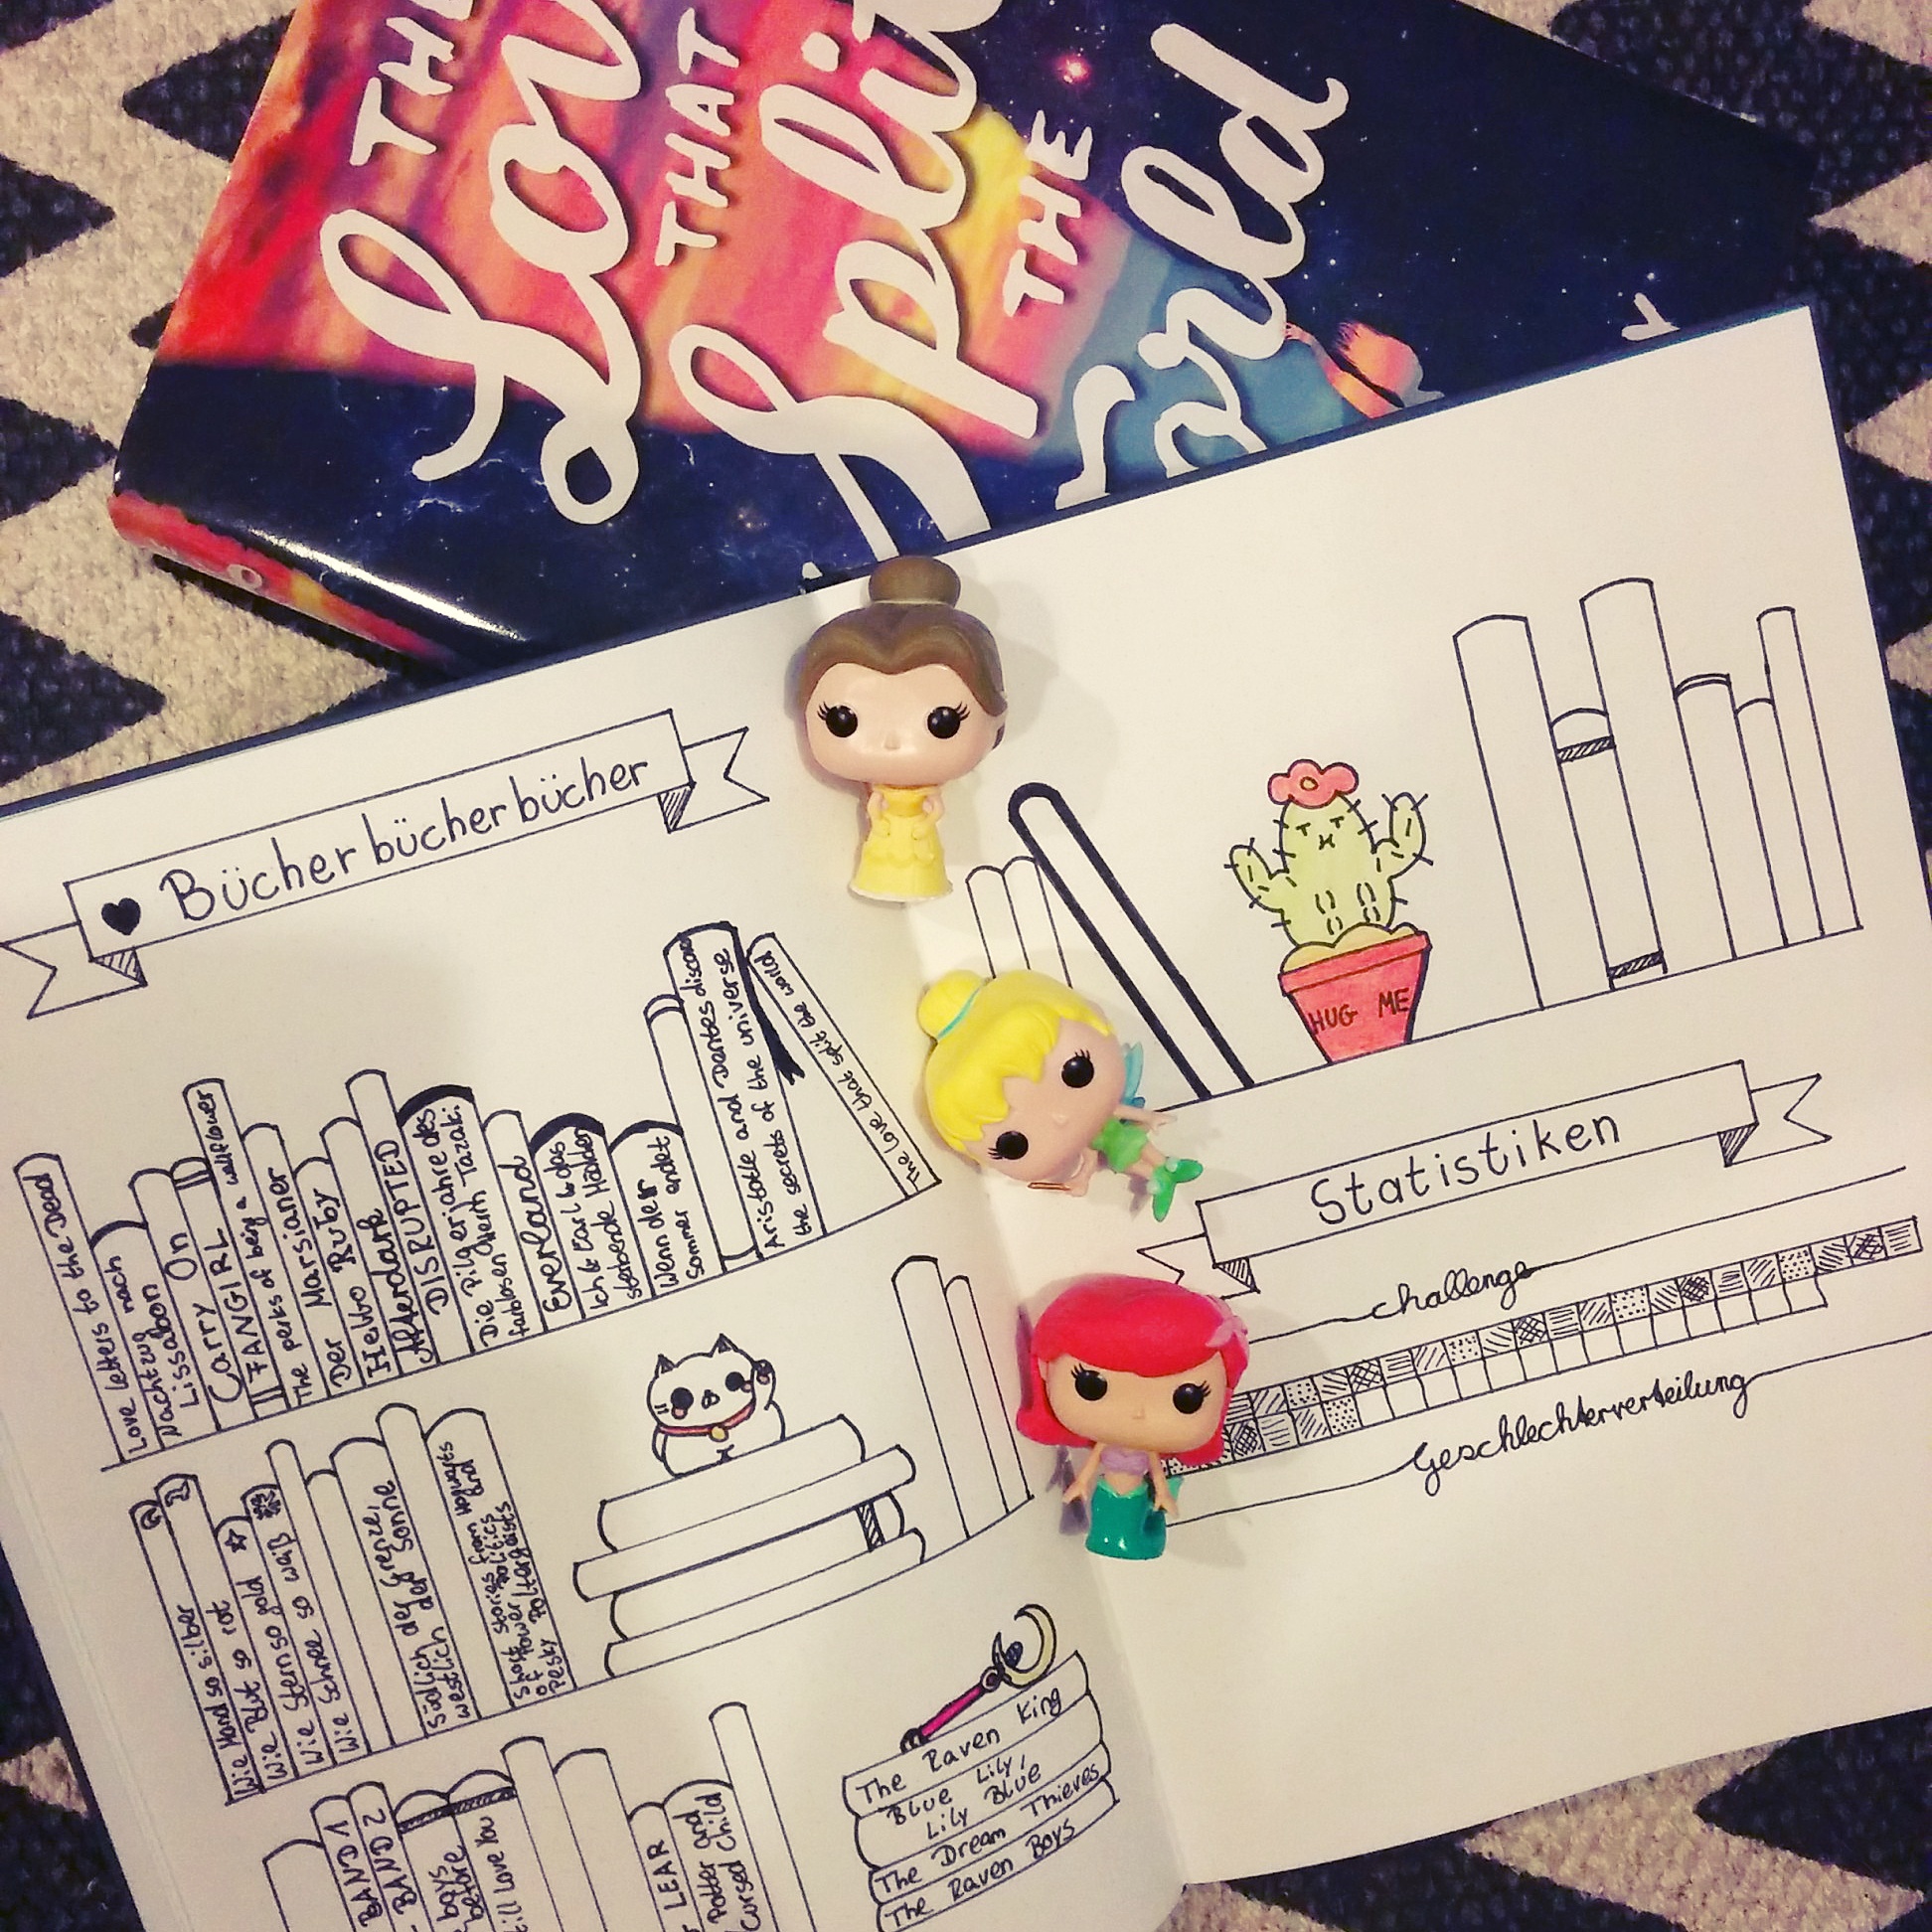 THE
Love
THAT
Split
THE
World
♥ Bücherbücherbücher
Love letters to the Dead
Nachtzug nach
Lissabon
Carry On
FANGIRL
The perks of being a wallflower
Der Marsianer
Hello Ruby
Afterdark
DISRUPTED
Die Pilgerjahre des
farblosen Herrn Tazaki
Everland
Ich & Earl & das
sterbende Mädchen
Wenn der
Sommer endet
Aristotle and Dantes discover
the secrets of the universe
The Love that split the world
Wie Mond so silber
Wie Blut so rot
Wie Stern so gold
Wie Schnee so weiß
Südlich der Grenze,
westlich der Sonne
Short stories from Hogwarts
of Power Politics and
Pesky Poltergeists
BAND 1
BAND 2
boys
before
still love You
LEAR
Potter and
Cursed Child
The Raven King
Blue Lily,
Lily Blue
The Dream Thieves
The Raven Boys
HUG ME
Statistiken
challenge
Geschlechterverteilung